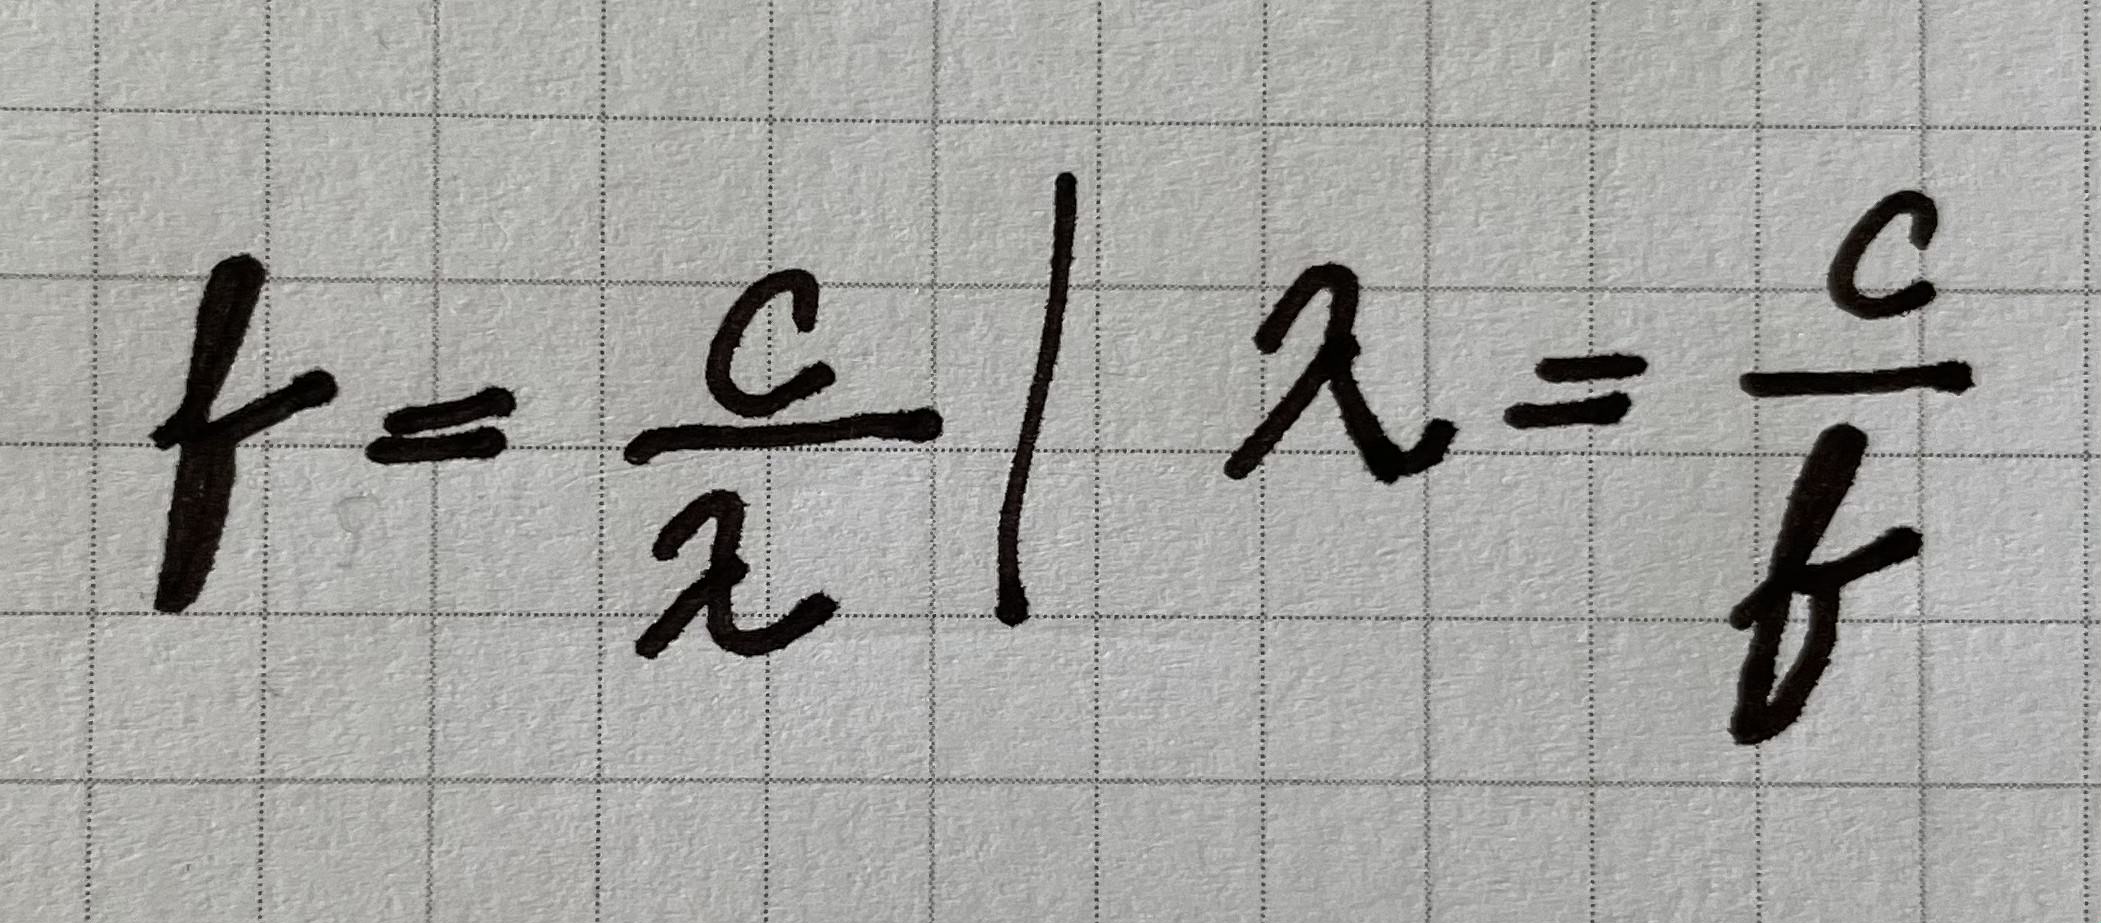 f = c/λ | λ = c/f